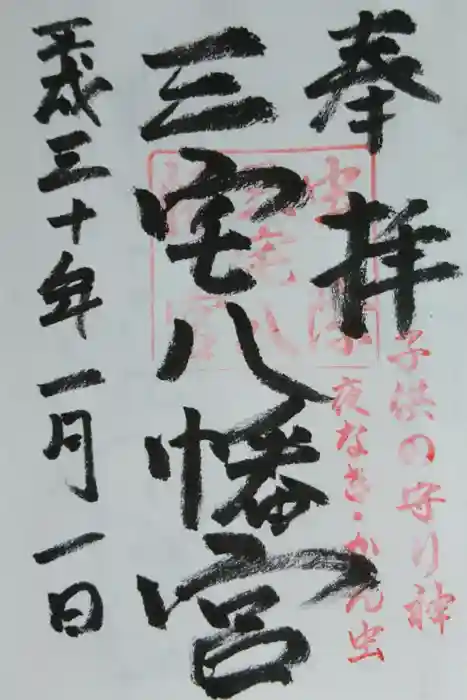 奉拝
子供の守り神
夜なき・かん虫
三宅八幡宮
平成三十年一月一日